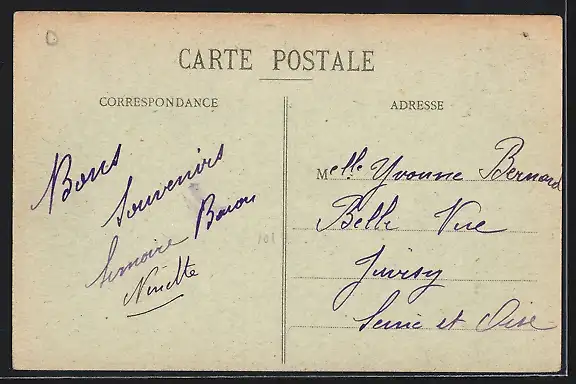 CARTE POSTALE
CORRESPONDANCE
Bons
Souvenirs
Baron
Ninette
101
ADRESSE
Melle Yvonne Bernard
Belle Vue
Juvisy
Seine et Oise